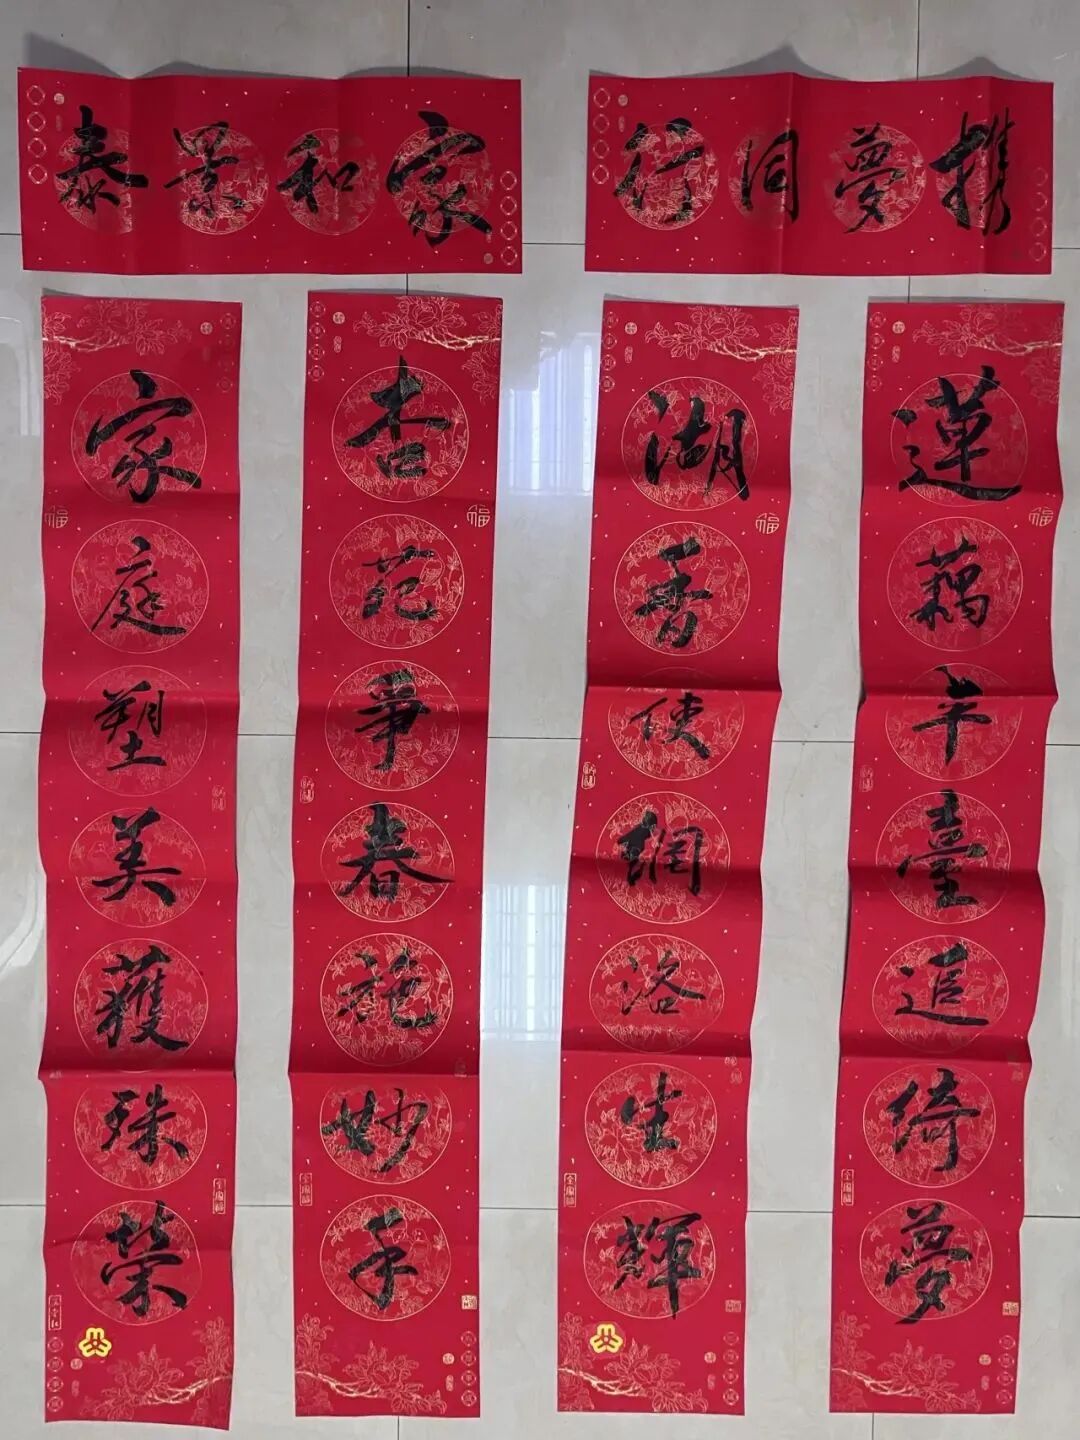 携夢同行
家和景泰
蓮藕平臺追綺夢
湖使網洛生輝
杏苑爭春施妙手
家庭塑美獲殊榮
福
福